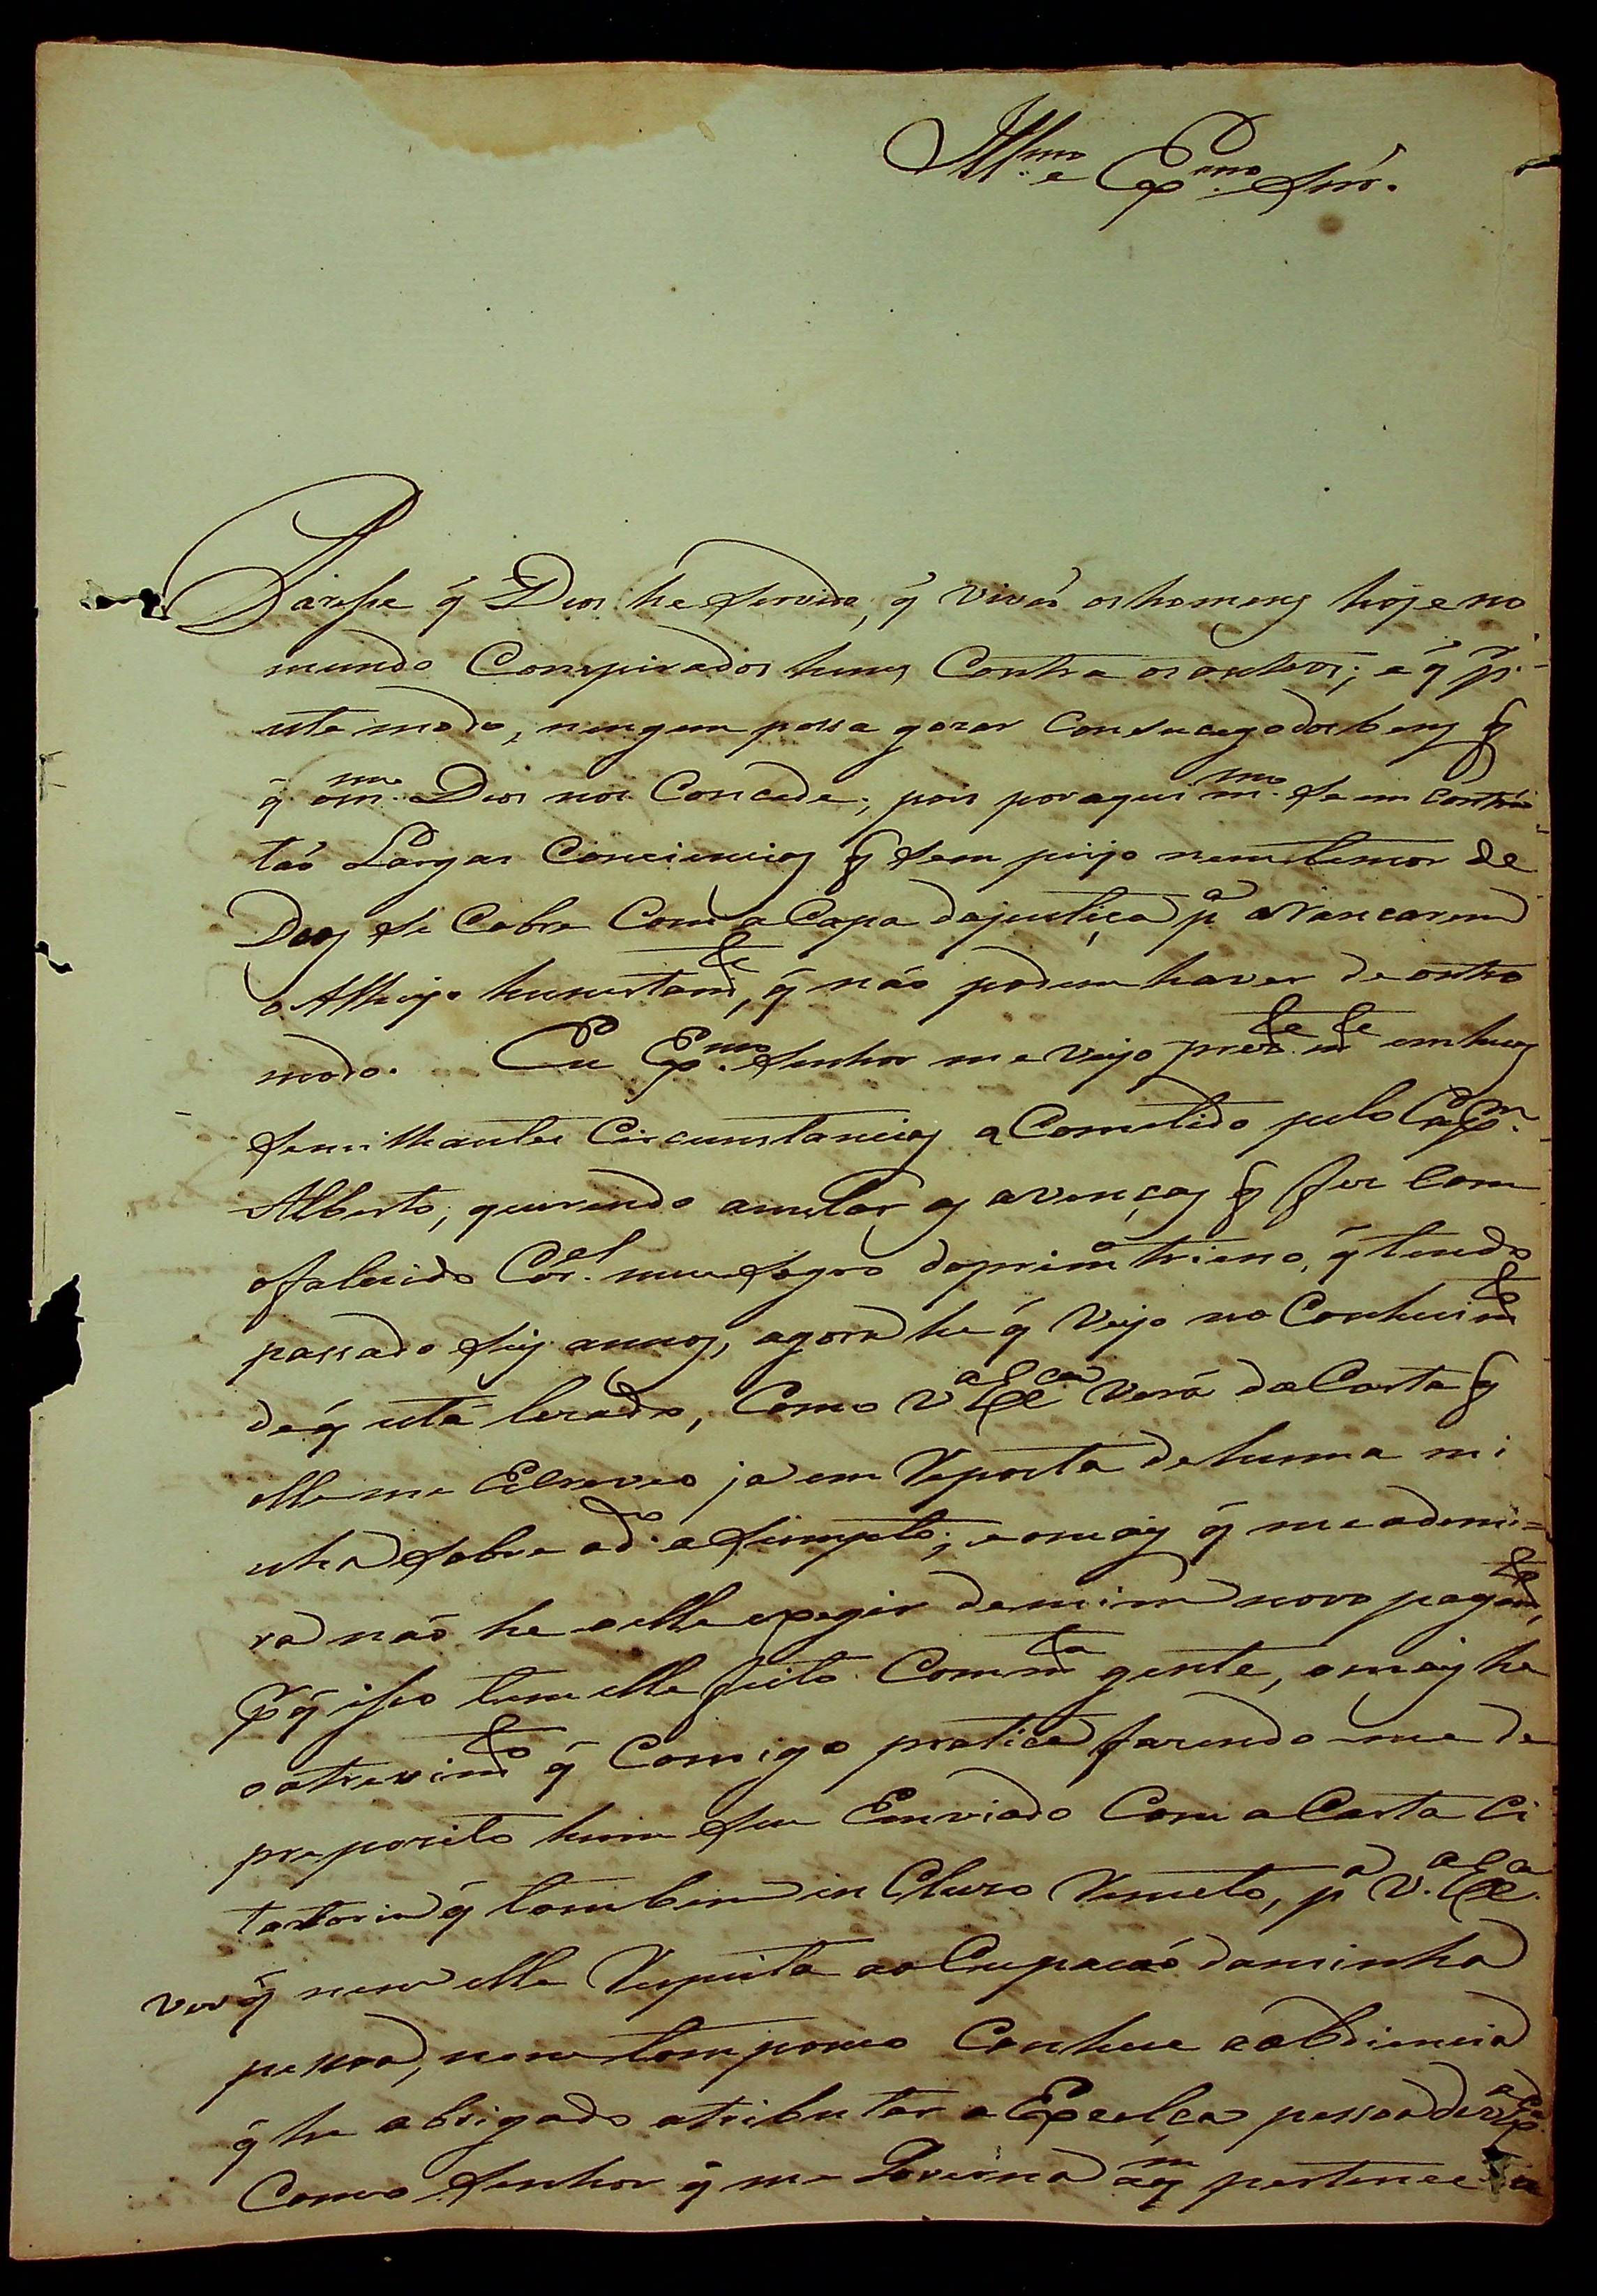 Illmo. e Exmo. Snr.
Parese q̃ Deos he servido, q̃ vivão os homens hoje no
mundo Conspirados huns Contra os outros; e q̃ pr.
este modo, ningem possa gozar Con sucego dos bens q
q̃ o mmo. Deos nos Concede; pois por aqui mmo. se em contrão
tão Largas Conciencias q sem pejo nem temor de
Deos se Cobre Com a Capa da justiça pa. arrancarem
o Alheyo hunestamte, q̃ não podem haver de outro
modo. Eu Exmo. Senhor me vejo prezte.mte em huas
semilhantes Circunstancias a Cometido pelo Capm.
Alberto, querendo anular as avenças q fez Com
o falecido Corel. meu sogro do primo trieno, q̃ tendo
passado seis annos, agora he q̃ vejo no Conhecimto
de q̃ está lezado, Como V.a Exca verá da Carta q
elle me Escreveo ja em Reposta de huma mi
nha sobre o do. asumpto; e o mais q̃ me admi=
ra não he elle exegir de mim novo pagamto,
Pr q̃ isso tem elle feito Com mta gente, o mais he
o atrevimto q̃ Comigo pratica fazendo-me de
proposito hum seu Enviado Com a Carta Ci
tatoria q̃ tambem in Cluzo Remeto, pa V.a Exa.
ver q̃ nem elle Respeita a oCupacão da minha
pessoa, nem tam pouco Conhece a obdiencia
q̃ he obrigado atributar a Excelça pessoa de V.a Exa
Como Senhor q̃ me Governa a qm pertence a